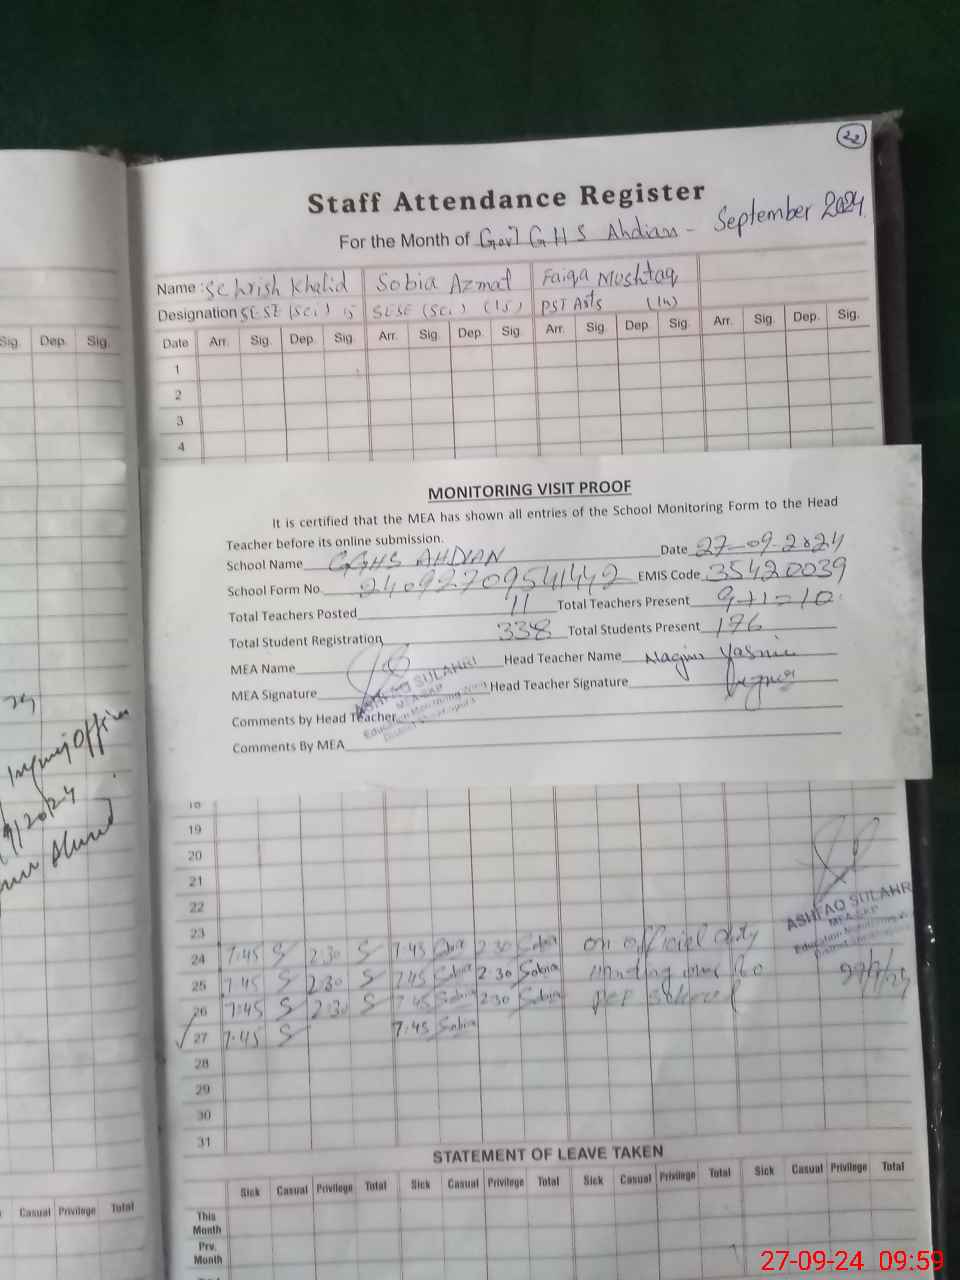 22
Staff Attendance Register
For the Month of Gov't G H S Ahdian - September 2024
Name : Sehrish Khalid Sobia Azmat Faiqa Mushtaq
Designation SESE (Sci) 15 SESE (Sci) (15) PST Arts (14)
Sig. Dep. Sig. Date Arr. Sig. Dep. Sig. Arr. Sig. Dep. Sig. Arr. Sig. Dep. Sig. Arr. Sig. Dep. Sig.
1
2
3
4
MONITORING VISIT PROOF
It is certified that the MEA has shown all entries of the School Monitoring Form to the Head
Teacher before its online submission.
School Name GGHS AHDIAN Date 27-09-2024
School Form No. 24092709541442 EMIS Code 35420039
Total Teachers Posted 11 Total Teachers Present 9+1=10
Total Student Registration 338 Total Students Present 196
MEA Name Head Teacher Name Nagina Yasmin
MEA Signature ASHFAQ SULAHRI Head Teacher Signature
Comments by Head Teacher
Comments By MEA
18
19
20
21
22
23
24 7:45 S 2:30 S 7:45 Sobia 2:30 Sobia on official duty
25 7:45 S 2:30 S 7:45 Sobia 2:30 Sobia
26 7:45 S 2:30 S 7:45 Sobia 2:30 Sobia per
27 7:45 S 7:45 Sobia
28
29
30
31
ASHFAQ SULAHRI
27/9/24
STATEMENT OF LEAVE TAKEN
Casual Privilege Total Sick Casual Privilege Total Sick Casual Privilege Total Sick Casual Privilege Total Sick Casual Privilege Total
This
Month
Prv.
Month
27-09-24 09:59